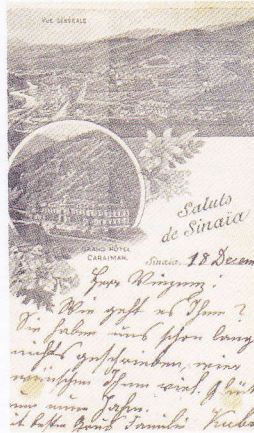 VUE GÉNÉRALE
GRAND HÔTEL
CARAIMAN.
Saluts
de Sinaïa
Sinaia, 18 Decem
Herr Vinzenz!
Wie geht es Ihnen?
Sie haben uns schon lang
nichts geschrieben, wir
wünschen Ihnen viel Glück
zum neuen Jahre.
Familie